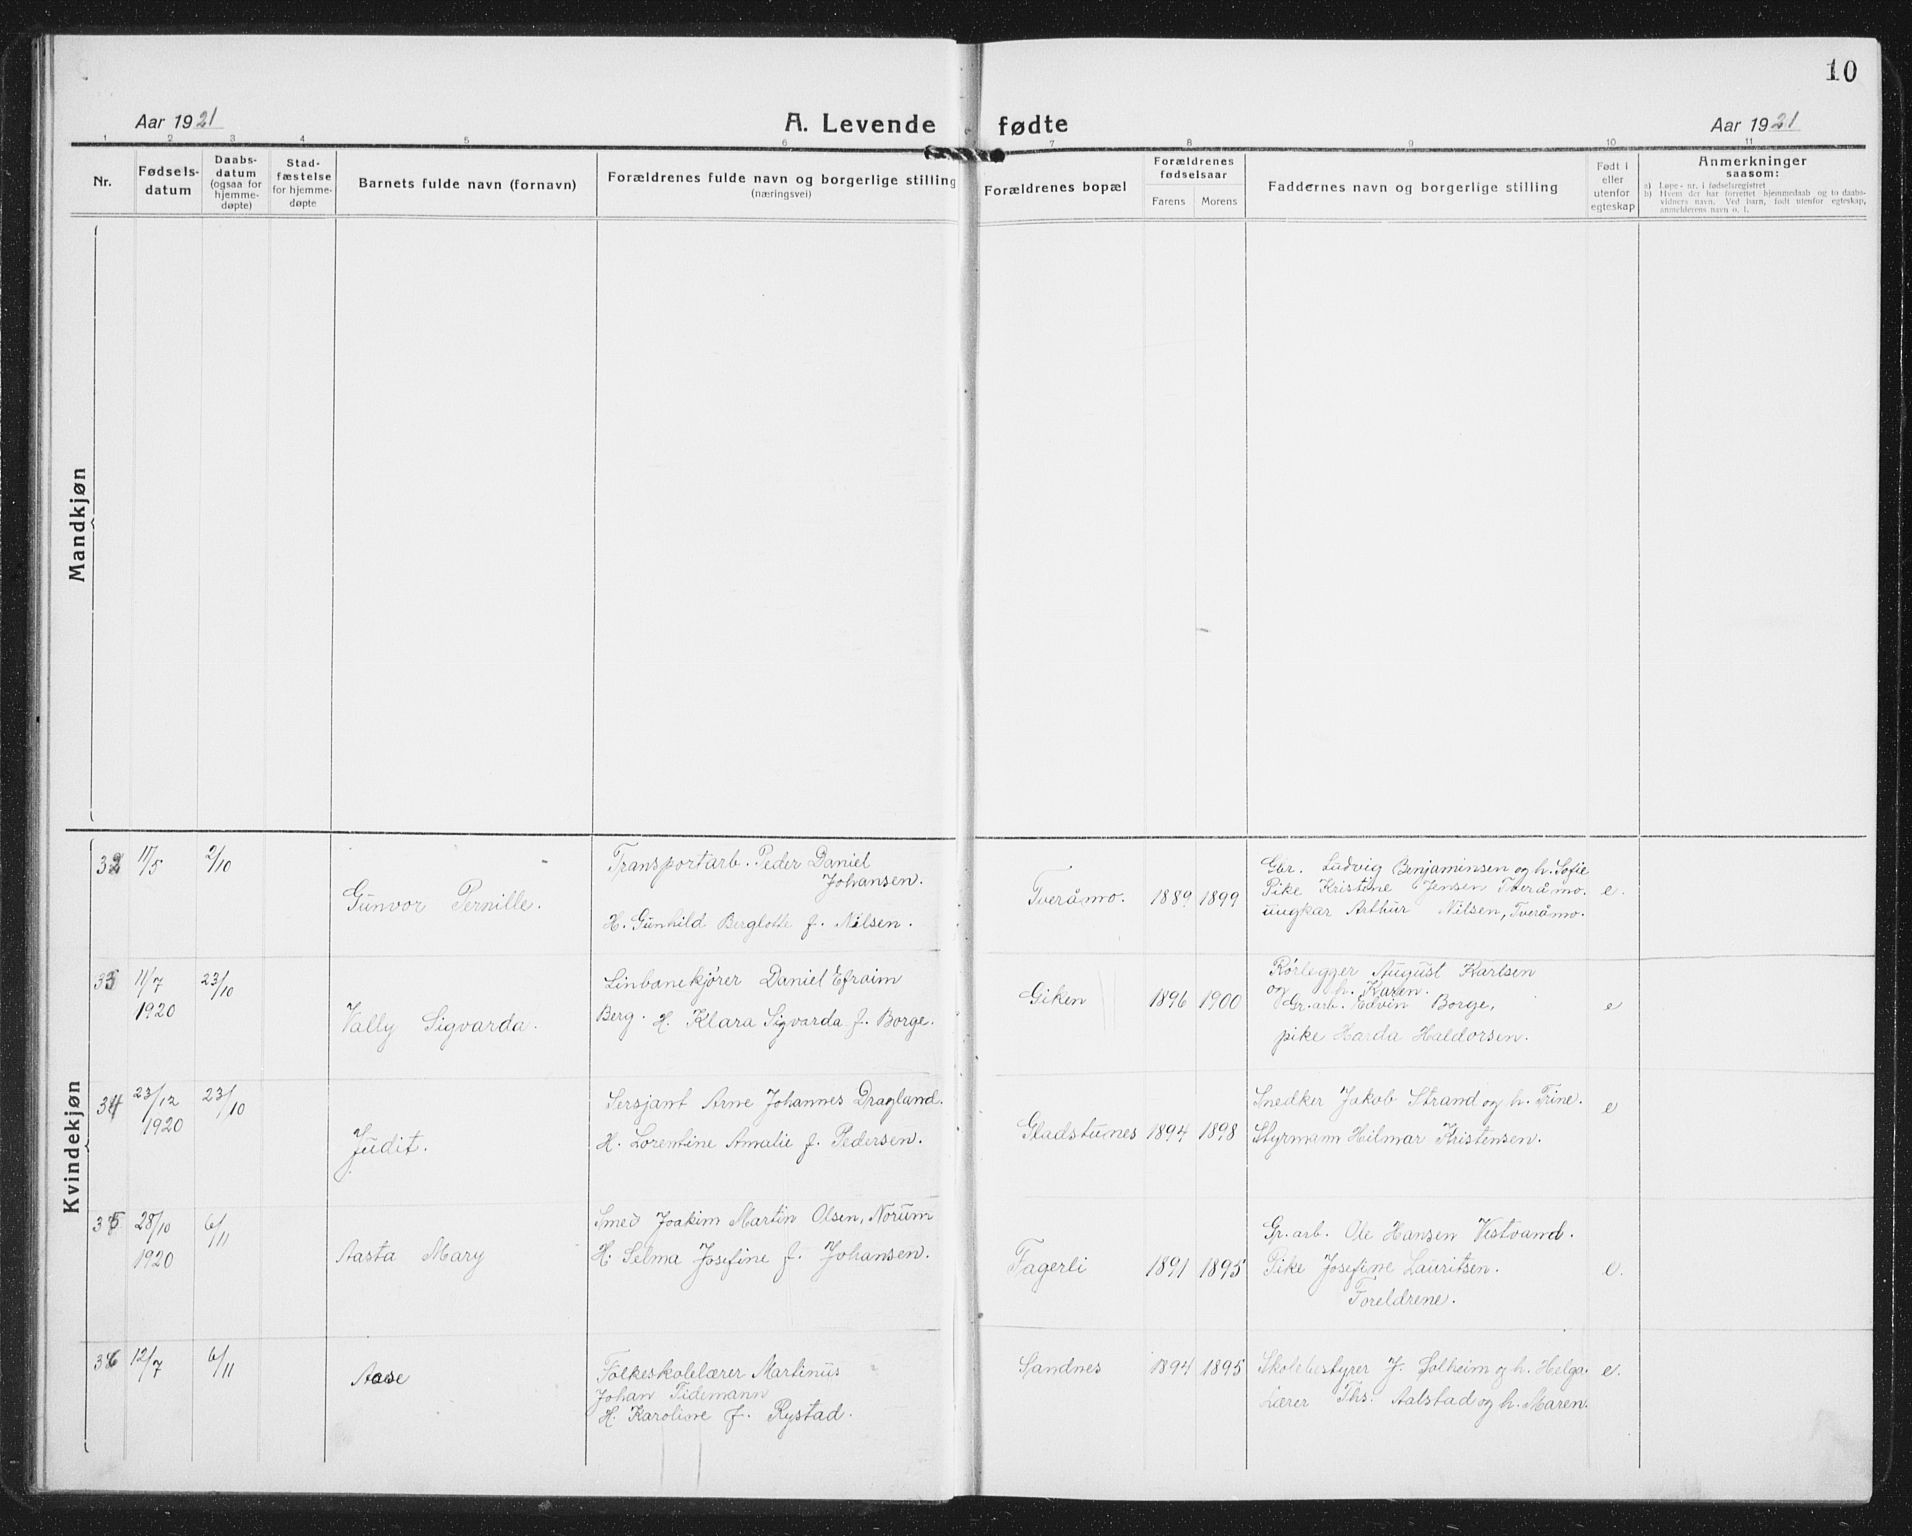 10
Aar 1921
A. Levende fødte
Aar 1921
1 2 3 4 5 6 7 8 9 10 11
Nr.
Fødsels-
datum
Daabs-
datum
(ogsaa for
hjemme-
døpte)
Stad-
fæstelse
for hjemme-
døpte
Barnets fulde navn (fornavn)
Forældrenes fulde navn og borgerlige stilling
(næringsvei)
Forældrenes bopæl
Forældrenes
fødselsaar
Farens Morens
Faddernes navn og borgerlige stilling
Født i
eller
utenfor
egteskap
Anmerkninger
saasom:
a) Løpe-nr. i fødselsregistret
b) Hvem der har forrettet hjemmedaab og to daabs-
vidners navn. Ved barn, født utenfor egteskap,
anmelderens navn o. l.
Mandkjøn
Kvindekjøn
32 11/5 2/10
Gunvor Pernille.
Transportarb. Peder Daniel
Johansen.
H. Gunhild Berglotte f. Nilsen.
Tveråmo. 1889 1899
Gbr. Ludvig Benjaminsen og h. Sofie
Pike Kristine Jensen Tveråmo.
ungkar Arthur Nilsen, Tveråmo.
e.
33 11/7 23/10
1920
Vally Sigvarda.
Linbanekjører Daniel Efraim
Berg. H. Klara Sigvarda f. Borge.
Giken 1896 1900
Rørlegger August Karlsen
og h. Karen.
Gr. arb. Edvin Borge,
pike Harda Haldorsen.
e
34 23/12 23/10
1920
Judit.
Sersjant Arne Johannes Dragland.
H. Lorentine Amalie f. Pedersen.
Gladstunes 1894 1898
Snedker Jakob Strand og h. Trine.
Styrmann Hilmar Kristensen.
e
35 28/10 6/11
1920
Aasta Mary
Smed Joakim Martin Olsen, Norum
H. Selma Josefine f. Johansen.
Fagerli 1891 1895
Gr. arb. Ole Hansen Vestvand.
Pike Josefine Lauritsen.
Foreldrene.
e.
36 12/7 6/11
Aase
Folkeskolelærer Martinus
Johan Tidemann
H. Karoline f. Rystad.
Sandnes 1894 1895
Skolebestyrer J. Solheim og h. Helga.
Lærer Ths. Aalstad og h. Maren.
e.